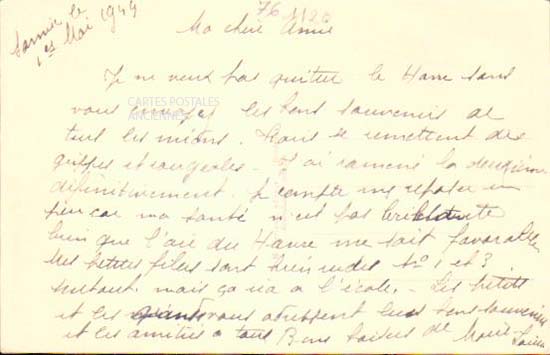 76 1120
le
1er Mai 1949
Ma chère Amie
Je ne veux pas quitter le Havre sans
vous envoyer les bons souvenirs de
CARTES POSTALES
ANCIENNES
tous les miens. Tous se remettent des
grippes et rougeoles. J'ai ramené la deuxième
définitivement. Je compte me reposer un
peu car ma santé n'est pas brillante
bien que l'air du Havre me soit favorable
Mes petites filles sont bien rudes No 1 et 3
surtout, mais ça va à l'école. - Les petits
et les grands vous adressent leurs bons souvenirs
et les amitiés à tous Bons baisers de Marie-Louise